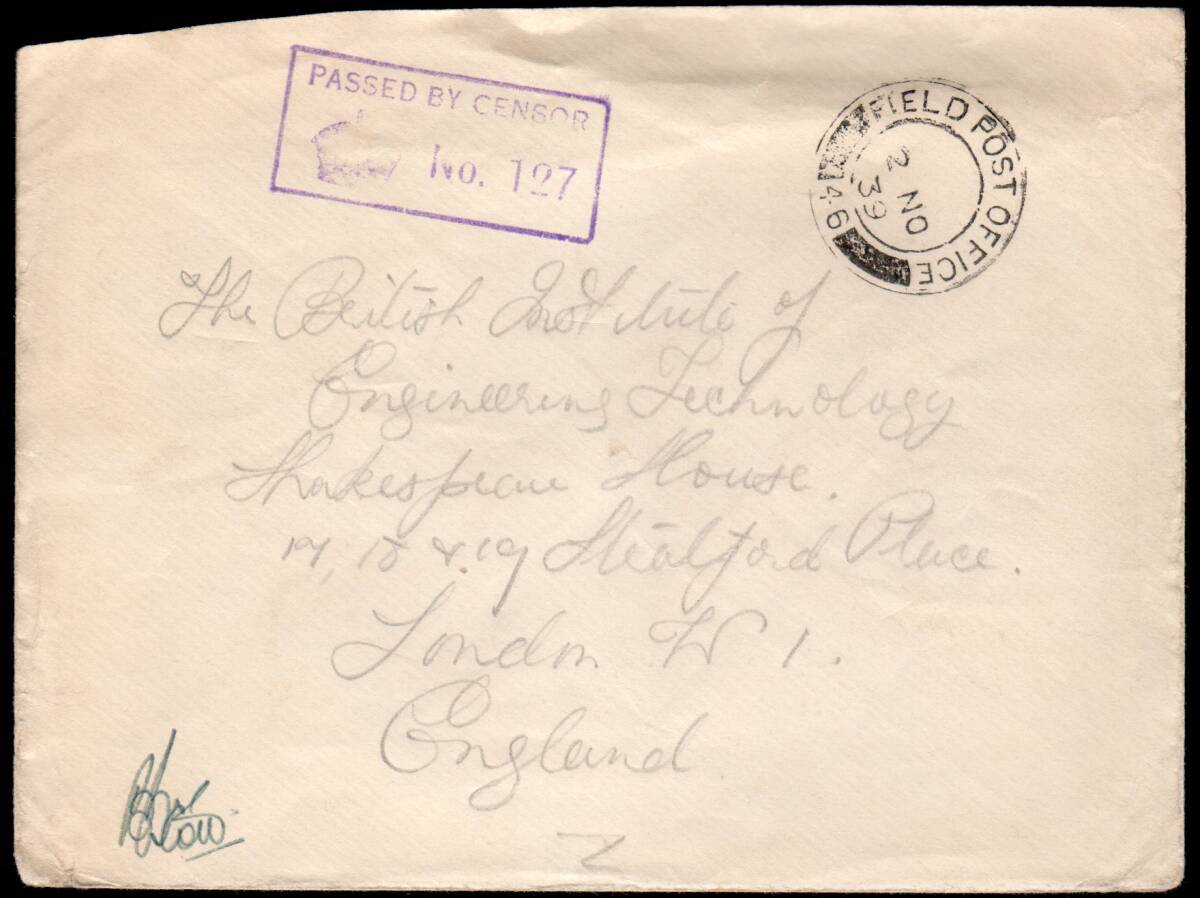 PASSED BY CENSOR
No. 127
FIELD POST OFFICE
46
2 NO
39
The British Institute of
Engineering Technology
Shakespeare House.
17, 18 & 19 Stratford Place.
London W 1.
England